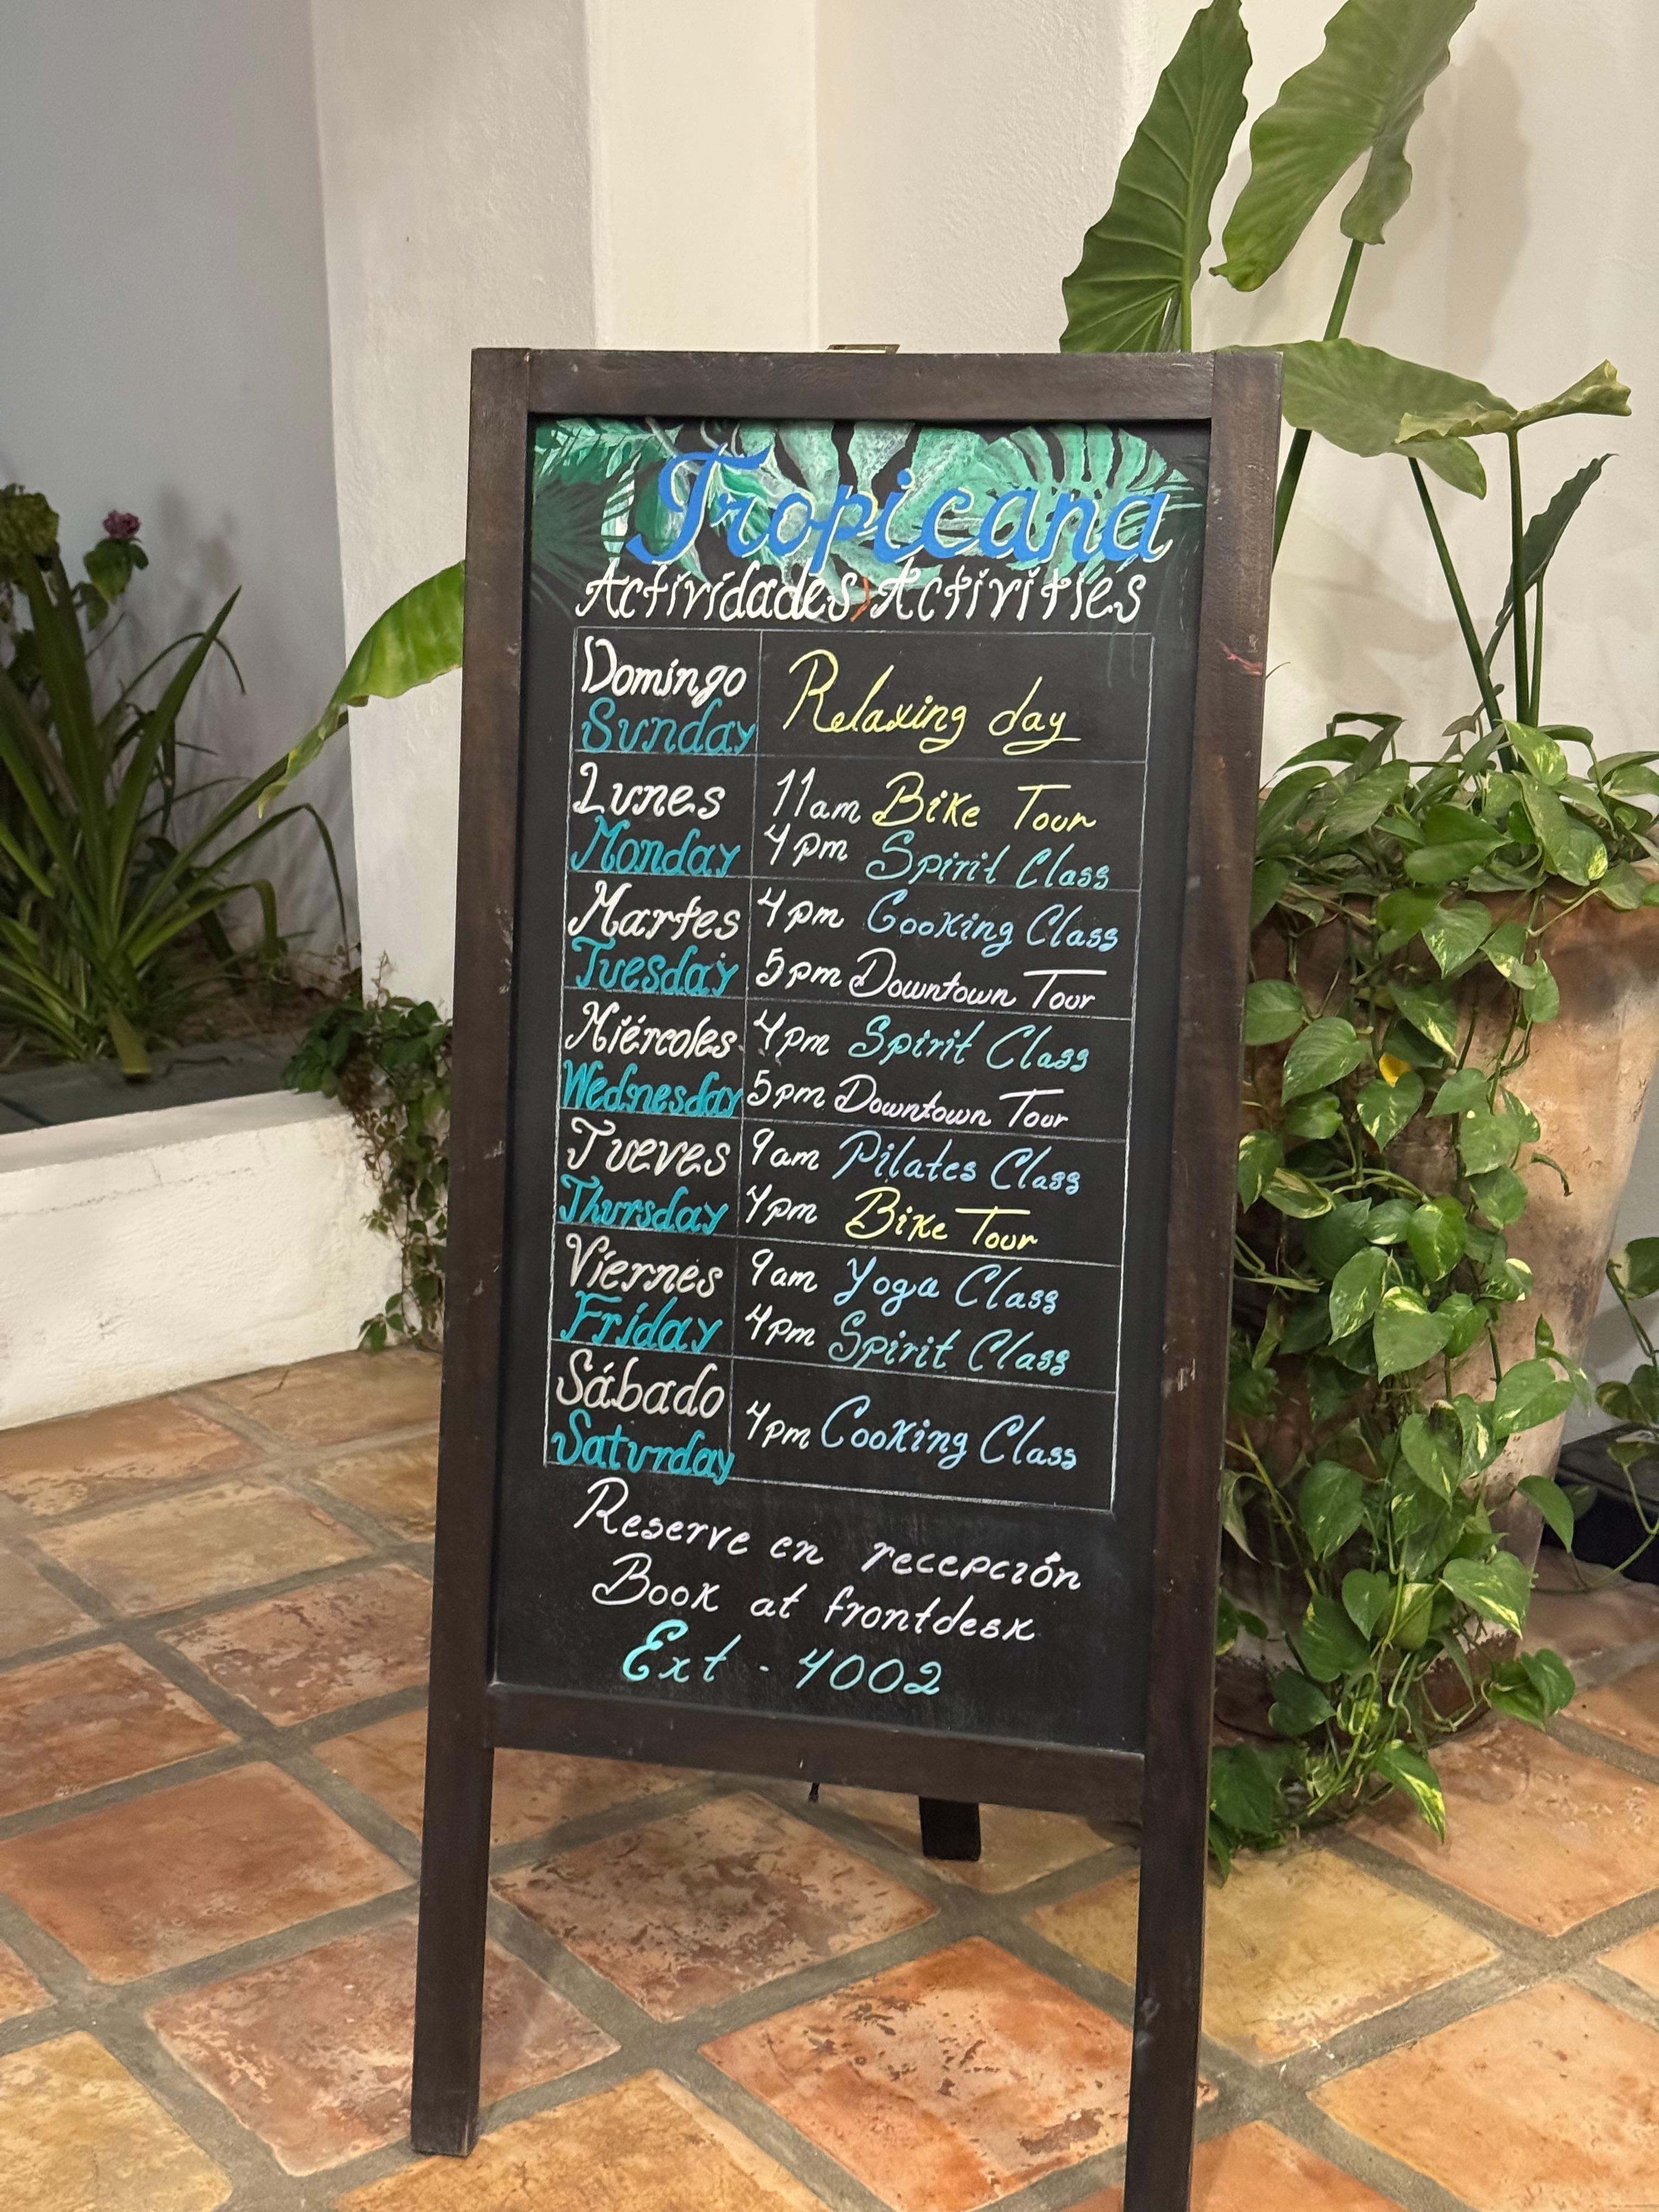 Tropicana
Actividades Activities
Domingo
Sunday
Relaxing day
Lunes
Monday
11am Bike Tour
4pm Spirit Class
Martes
Tuesday
4pm Cooking Class
5pm Downtown Tour
Miércoles
Wednesday
4pm Spirit Class
5pm Downtown Tour
Jueves
Thursday
9am Pilates Class
4pm Bike Tour
Viernes
Friday
9am Yoga Class
4pm Spirit Class
Sábado
Saturday
4pm Cooking Class
Reserve en recepción
Book at frontdesk
Ext - 4002